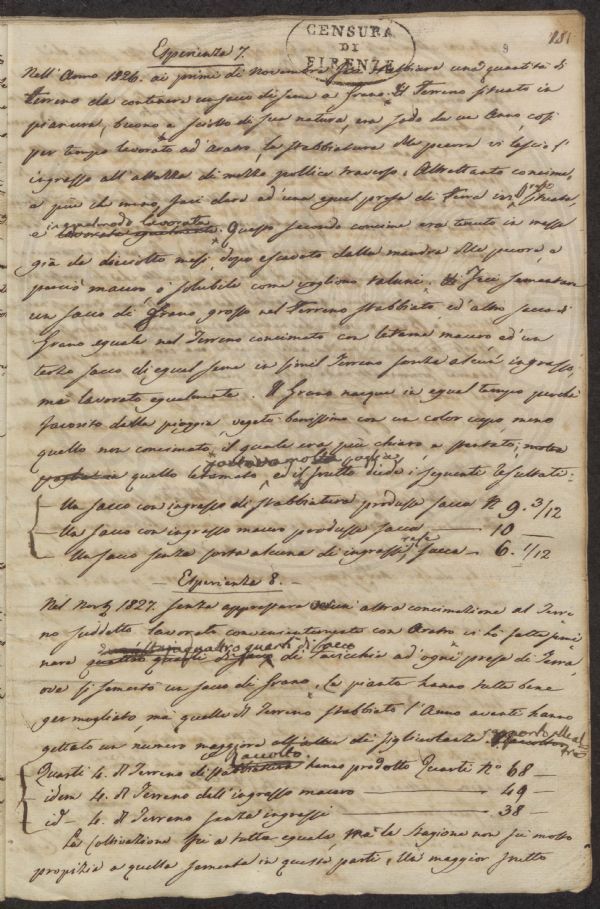 CENSURA
DI
FIRENZE
181
9
Esperienza 7.
Nell'Anno 1826. ai primi di Novembre feci stabbiare una quantità di
terreno da contenere un sacco di seme a grano. Il Terreno situato in
pianura, buono e sciolto di sua natura, era sodo da un Anno, così
per tempo lavorato ad Aratro, la stabbiatura delle pecore vi lasciò l'
ingrasso all'altezza di mezzo pollice traverso. Altrettanto concime,
o più che meno, feci dare ad una egual presa di terra
e lavorata egualmente. Questo secondo concime era tenuto in massa
già da diciotto mesi, dopo escavato dalla mandra delle pecore, e
perciò macero, o solubile come vogliono taluni. Feci sementare
un sacco di Grano grosso nel Terreno stabbiato, ed altro sacco di
Grano eguale nel Terreno concimato con letame macero ed un
terzo sacco di egual seme in simil Terreno senza alcun ingrasso,
ma lavorato egualmente. Il Grano nacque in egual tempo perché
favorito dalla pioggia, vegetò benissimo con un color cupo, meno
quello non concimato, il quale era più chiaro e stentato; molta
quello letamato, ed il frutto diede i seguenti resultati:
Un sacco con ingrasso di stabbiatura produsse sacca N 9. 3/12
Un sacco con ingrasso macero produsse sacca 10
Un sacco senza sorta alcuna di ingrassi, rese sacca 6. 1/12
Esperienza 8.
Nel 1827. senza apprestare altra concimazione al Terre
no suddetto lavorato con Aratro vi ho fatto semi
nare di sacco di ad ogni presa di Terra,
ove si sementò un sacco di grano. Le piante hanno tutte bene
germogliato, ma quelle del Terreno stabbiato l'Anno avanti hanno
gettato un numero maggiore
Quarti 4. di Terreno di stabbiatura hanno prodotto Quarti N° 68 —
Raccolto
idem 4. di Terreno dell'ingrasso macero 49 —
id 4. di Terreno senza ingrassi 38 —
La Coltivazione fu a tutte eguale, ma la stagione non fu molto
propizia a quella sementa in queste parti, Un maggior frutto